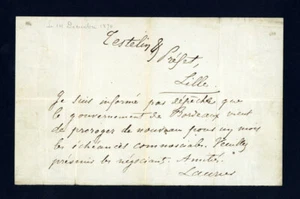 14 Décembre 1870
Testelin
Préfet,
Lille.
Je suis informé par dépêche que
le gouvernement de Bordeaux vient
de proroger de nouveau pour un mois
les échéances commerciales. Veuillez
prévenir les négociants. Amitiés.